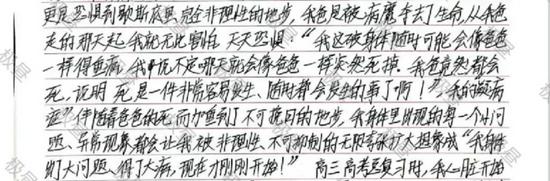 更是恐惧到歇斯底里、完全非理性的地步。我爸是被病魔夺去生命,从我爸
走的那天起,我就无比害怕,天天恐惧:“我这破身体随时可能会像爸爸
一样得重病,我说不定哪天就会像爸爸一样突然死掉。我爸竟然都会
死,说明死是一件非常容易发生、随时都会发生的事了啊!”,我的疑病
症”伴随着爸爸的死而加重到了不可挽回的地步,我身体里出现的每一个小问
题、异常现象都会让我被非理性、不可抑制的无限夸张扩大想象成“我身体
出了大问题、得了大病,现在才刚刚开始!” 高三高考总复习时,我心脏开始
极昼